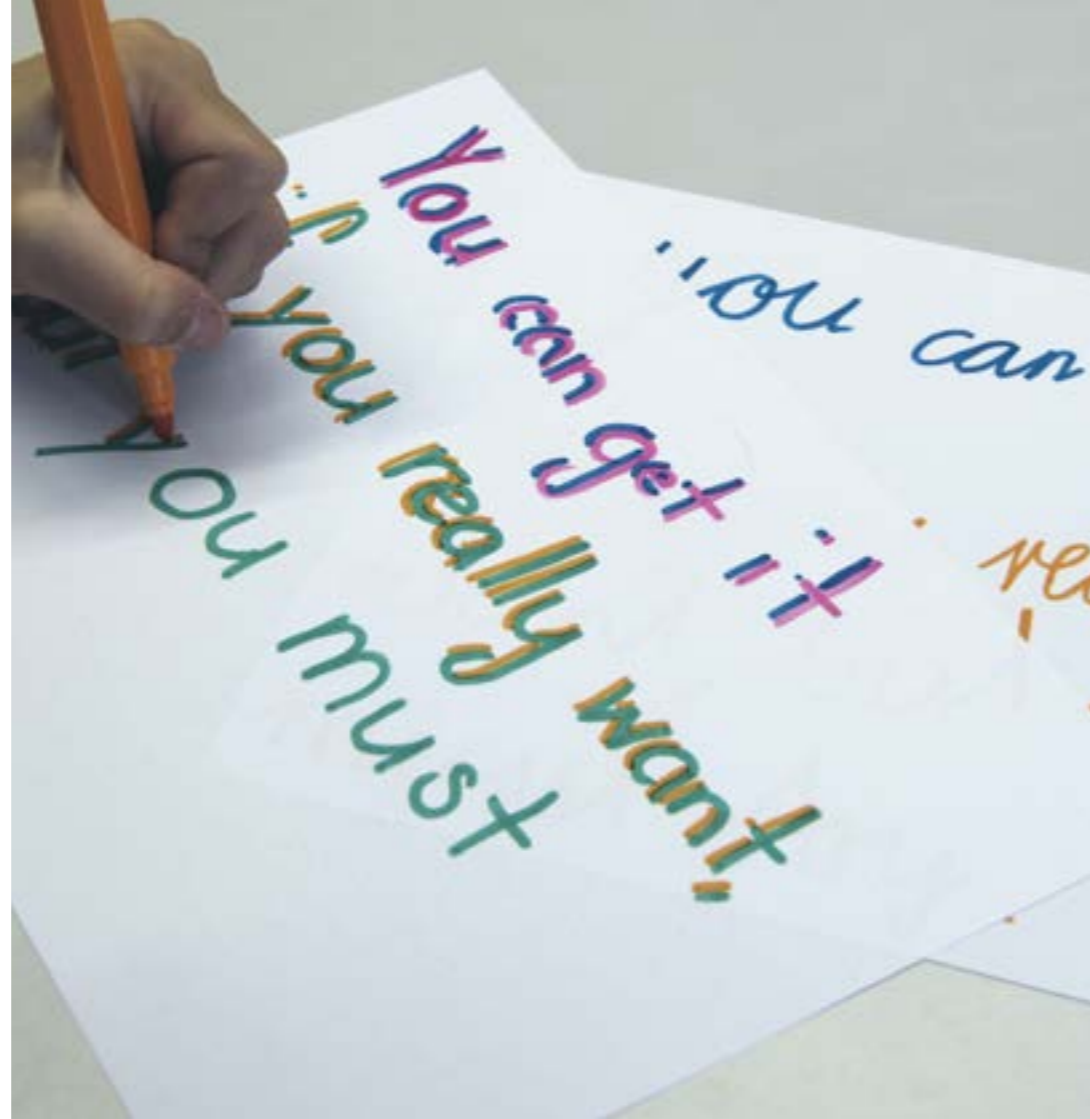 You can get it
if you really want,
you must
ou can